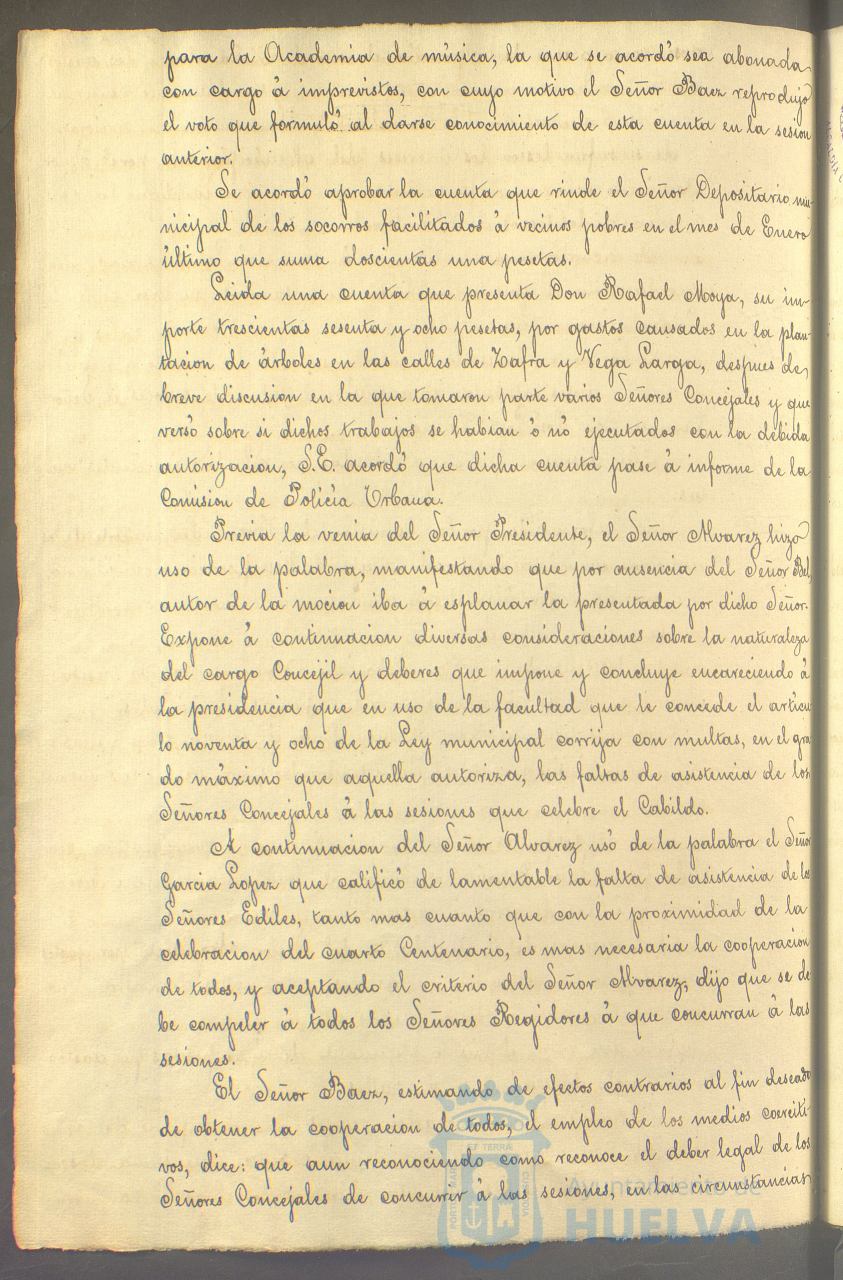 para la Academia de música, la que se acordó sea abonada
con cargo á imprevistos, con cuyo motivo el Señor Baez reprodujo
el voto que formuló al darse conocimiento de esta cuenta en la sesion
anterior.
Se acordó aprobar la cuenta que rinde el Señor Depositario mu-
nicipal de los socorros facilitados á vecinos pobres en el mes de Enero
último que suma doscientas una pesetas.
Leida una cuenta que presenta Don Rafael Moya, su im-
porte trescientas sesenta y ocho pesetas, por gastos causados en la plan-
tacion de árboles en las calles de Zafra y Vega Larga, despues de
breve discusion en la que tomaron parte varios Señores Concejales y que
versó sobre si dichos trabajos se habian ó nó ejecutados con la debida
autorizacion, S.E. acordó que dicha cuenta pase á informe de la
Comision de Policía Urbana.
Previa la venia del Señor Presidente, el Señor Alvarez hizo
uso de la palabra, manifestando que por ausencia del Señor Bel,
autor de la mocion iba á esplanar la presentada por dicho Señor.
Expone á continuacion diversas consideraciones sobre la naturaleza
del cargo Concejil y deberes que impone y concluye encareciendo á
la presidencia que en uso de la facultad que le concede el articu
lo noventa y ocho de la Ley municipal corrija con multas, en el gra
do máximo que aquella autoriza, las faltas de asistencia de los
Señores Concejales á las sesiones que celebre el Cabildo.
A continuacion del Señor Alvarez usó de la palabra el Señor
Garcia Lopez que calificó de lamentable la falta de asistencia de los
Señores Ediles, tanto mas cuanto que con la proximidad de la
celebracion del cuarto Centenario, es mas necesaria la cooperacion
de todos, y aceptando el criterio del Señor Alvarez, dijo que se de
be compeler á todos los Señores Regidores á que concurran á las
sesiones.
El Señor Baez, estimando de efectos contrarios al fin deseado
de obtener la cooperacion de todos, el empleo de los medios coerciti-
vos, dice: que aun reconociendo como reconoce el deber legal de los
Señores Concejales de concurrir á las sesiones, en las circunstancias
Ayuntamiento de
HUELVA